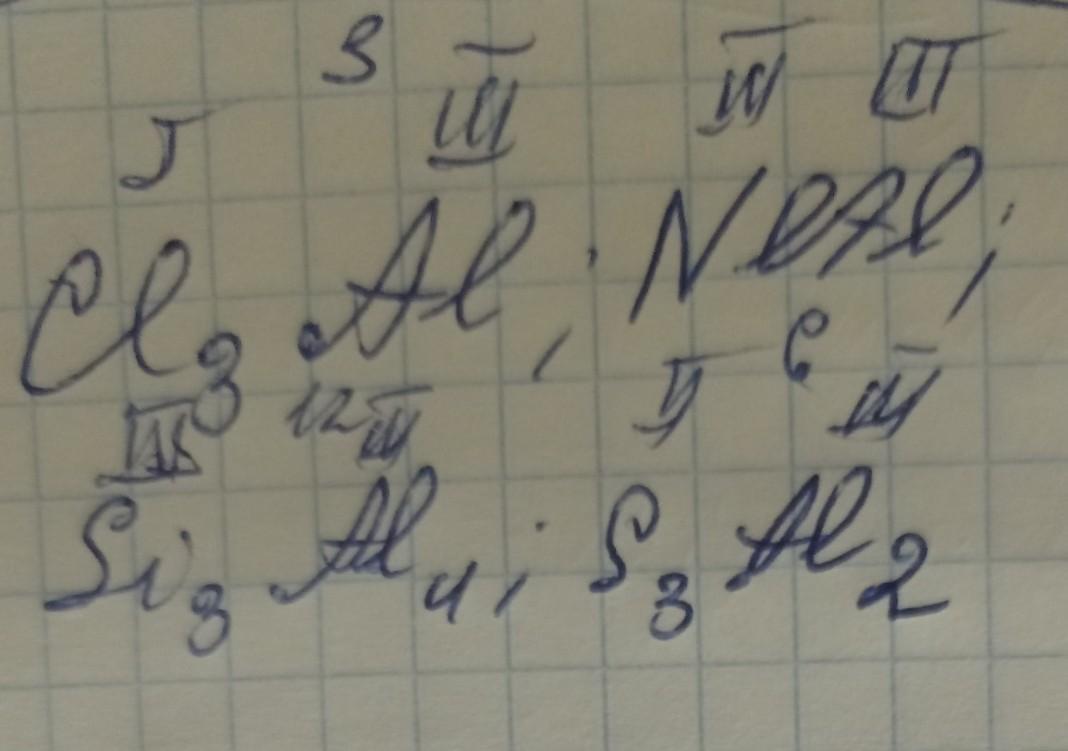 3 III III III
I
Cl₃ Al ; N Al ;
IV 12 III II 6 III
Si₃ Al₄ ; S₃ Al₂